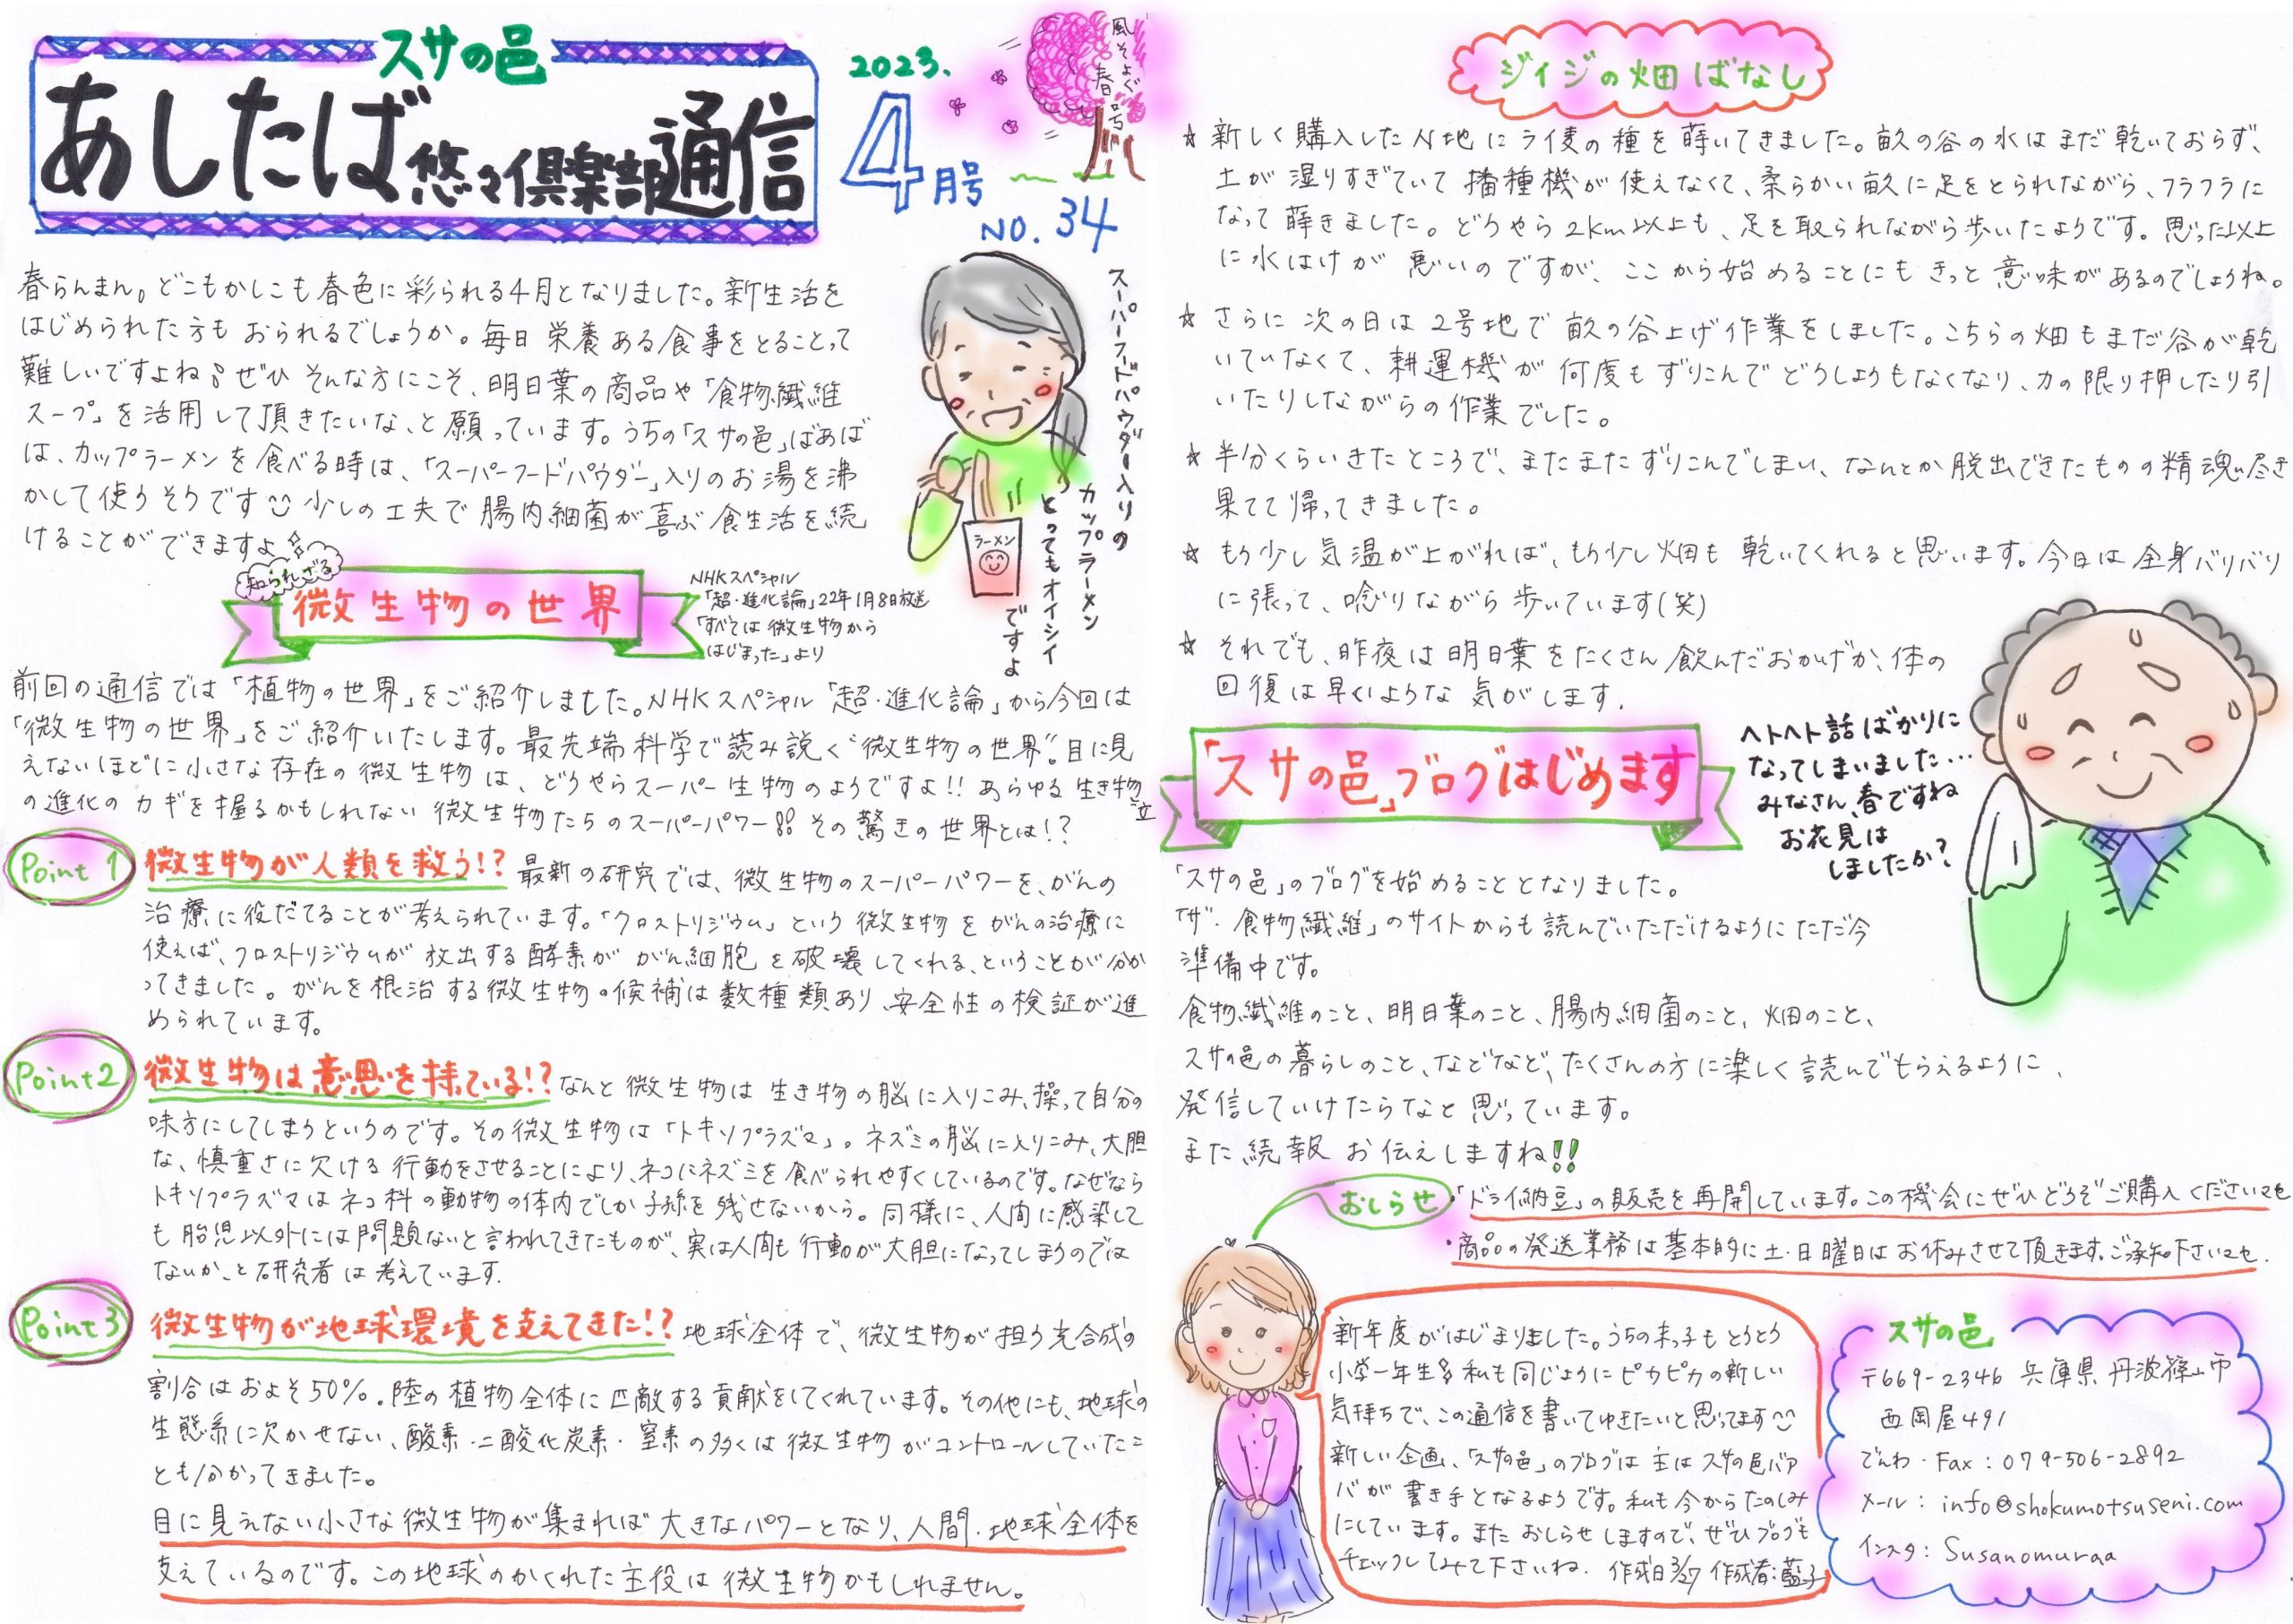 スサの邑
あしたば悠々倶楽部通信
2023.
4月号
NO. 34
風そよぐ
春号
春らんまん。どこもかしこも春色に彩られる4月となりました。新生活を
はじめられた方もおられるでしょうか。毎日栄養ある食事をとることって
難しいですよね。ぜひそんな方にこそ、明日葉の商品や「食物繊維
スープ」を活用して頂きたいな、と願っています。うちの「スサの邑」ばあば
は、カップラーメンを食べる時は、「スーパーフードパウダー」入りのお湯を沸
かして使うそうです 少しの工夫で腸内細菌が喜ぶ食生活を続
けることができますよ
スーパーフードパウダー入りの
カップラーメン
とってもオイシイ
ですよ
ラーメン
知られざる
微生物の世界
NHKスペシャル
「超・進化論」22年1月8日放送
「すべては微生物から
はじまった」より
前回の通信では「植物の世界」をご紹介しました。NHKスペシャル「超・進化論」から今回は
「微生物の世界」をご紹介いたします。最先端科学で読み説く“微生物の世界”。目に見
えないほどに小さな存在の微生物は、どうやらスーパー生物のようですよ!! あらゆる生き物
の進化のカギを握るかもしれない微生物たちのスーパーパワー!! その驚きの世界とは!?
Point 1
微生物が人類を救う!? 最新の研究では、微生物のスーパーパワーを、がんの
治療に役だてることが考えられています。「クロストリジウム」という微生物をがんの治療に
使えば、クロストリジウムが放出する酵素ががん細胞を破壊してくれる、ということが分か
ってきました。がんを根治する微生物の候補は数種類あり、安全性の検証が進
められています。
Point2
微生物は意思を持っている!? なんと微生物は生き物の脳に入りこみ、操って自分の
味方にしてしまうというのです。その微生物は「トキソプラズマ」。ネズミの脳に入りこみ、大胆
な、慎重さに欠ける行動をさせることにより、ネコにネズミを食べられやすくしているのです。なぜなら
トキソプラズマはネコ科の動物の体内でしか子孫を残せないから。同様に、人間に感染して
も胎児以外には問題ないと言われてきたものが、実は人間も行動が大胆になってしまうのでは
ないか、と研究者は考えています。
Point3
微生物が地球環境を支えてきた!? 地球全体で、微生物が担う光合成の
割合はおよそ50%。陸の植物全体に匹敵する貢献をしてくれています。その他にも、地球の
生態系に欠かせない、酸素・二酸化炭素・窒素の多くは微生物がコントロールしていたこ
とも分かってきました。
目に見えない小さな微生物が集まれば大きなパワーとなり、人間・地球全体を
支えているのです。この地球のかくれた主役は微生物かもしれません。
ジイジの畑ばなし
☆ 新しく購入したN地にライ麦の種を蒔いてきました。畝の谷の水はまだ乾いておらず、
土が湿りすぎていて播種機が使えなくて、柔らかい畝に足をとられながら、フラフラに
なって蒔きました。どうやら2km以上も、足を取られながら歩いたようです。思った以上
に水はけが悪いのですが、ここから始めることにもきっと意味があるのでしょうね。
☆ さらに次の日は2号地で畝の谷上げ作業をしました。こちらの畑もまだ谷が乾
いていなくて、耕運機が何度もずりこんでどうしようもなくなり、力の限り押したり引
いたりしながらの作業でした。
☆ 半分くらいきたところで、またまたずりこんでしまい、なんとか脱出できたものの精魂尽き
果てて帰ってきました。
☆ もう少し気温が上がれば、もう少し畑も乾いてくれると思います。今日は全身バリバリ
に張って、唸りながら歩いています(笑)
☆ それでも、昨夜は明日葉をたくさん飲んだおかげか、体の
回復は早いような気がします。
ヘトヘト話ばかりに
なってしまいました…
みなさん、春ですね
お花見は
しましたか?
「スサの邑」ブログはじめます
「スサの邑」のブログを始めることとなりました。
「ザ・食物繊維」のサイトからも読んでいただけるようにただ今
準備中です。
食物繊維のこと、明日葉のこと、腸内細菌のこと、畑のこと、
スサの邑の暮らしのこと、などなど、たくさんの方に楽しく読んでもらえるように、
発信していけたらなと思っています。
また続報お伝えしますね!!
おしらせ
・「ドライ納豆」の販売を再開しています。この機会にぜひどうぞご購入くださいませ
・商品の発送業務は基本的に土・日曜日はお休みさせて頂きます。ご承知下さいませ.
新年度がはじまりました。うちの末っ子もとうとう
小学一年生 私も同じようにピカピカの新しい
気持ちで、この通信を書いてゆきたいと思ってます
新しい企画、「スサの邑」のブログは主はスサの邑バア
バが書き手となるようです。私も今からたのしみ
にしています。またおしらせしますので、ぜひブログも
チェックしてみて下さいね. 作成日3/27 作成者:藍子
スサの邑
〒669-2346 兵庫県丹波篠山市
西岡屋491
でんわ・Fax:079-506-2892
メール: info@shokumotsuseni.com
インスタ: Susanomuraa